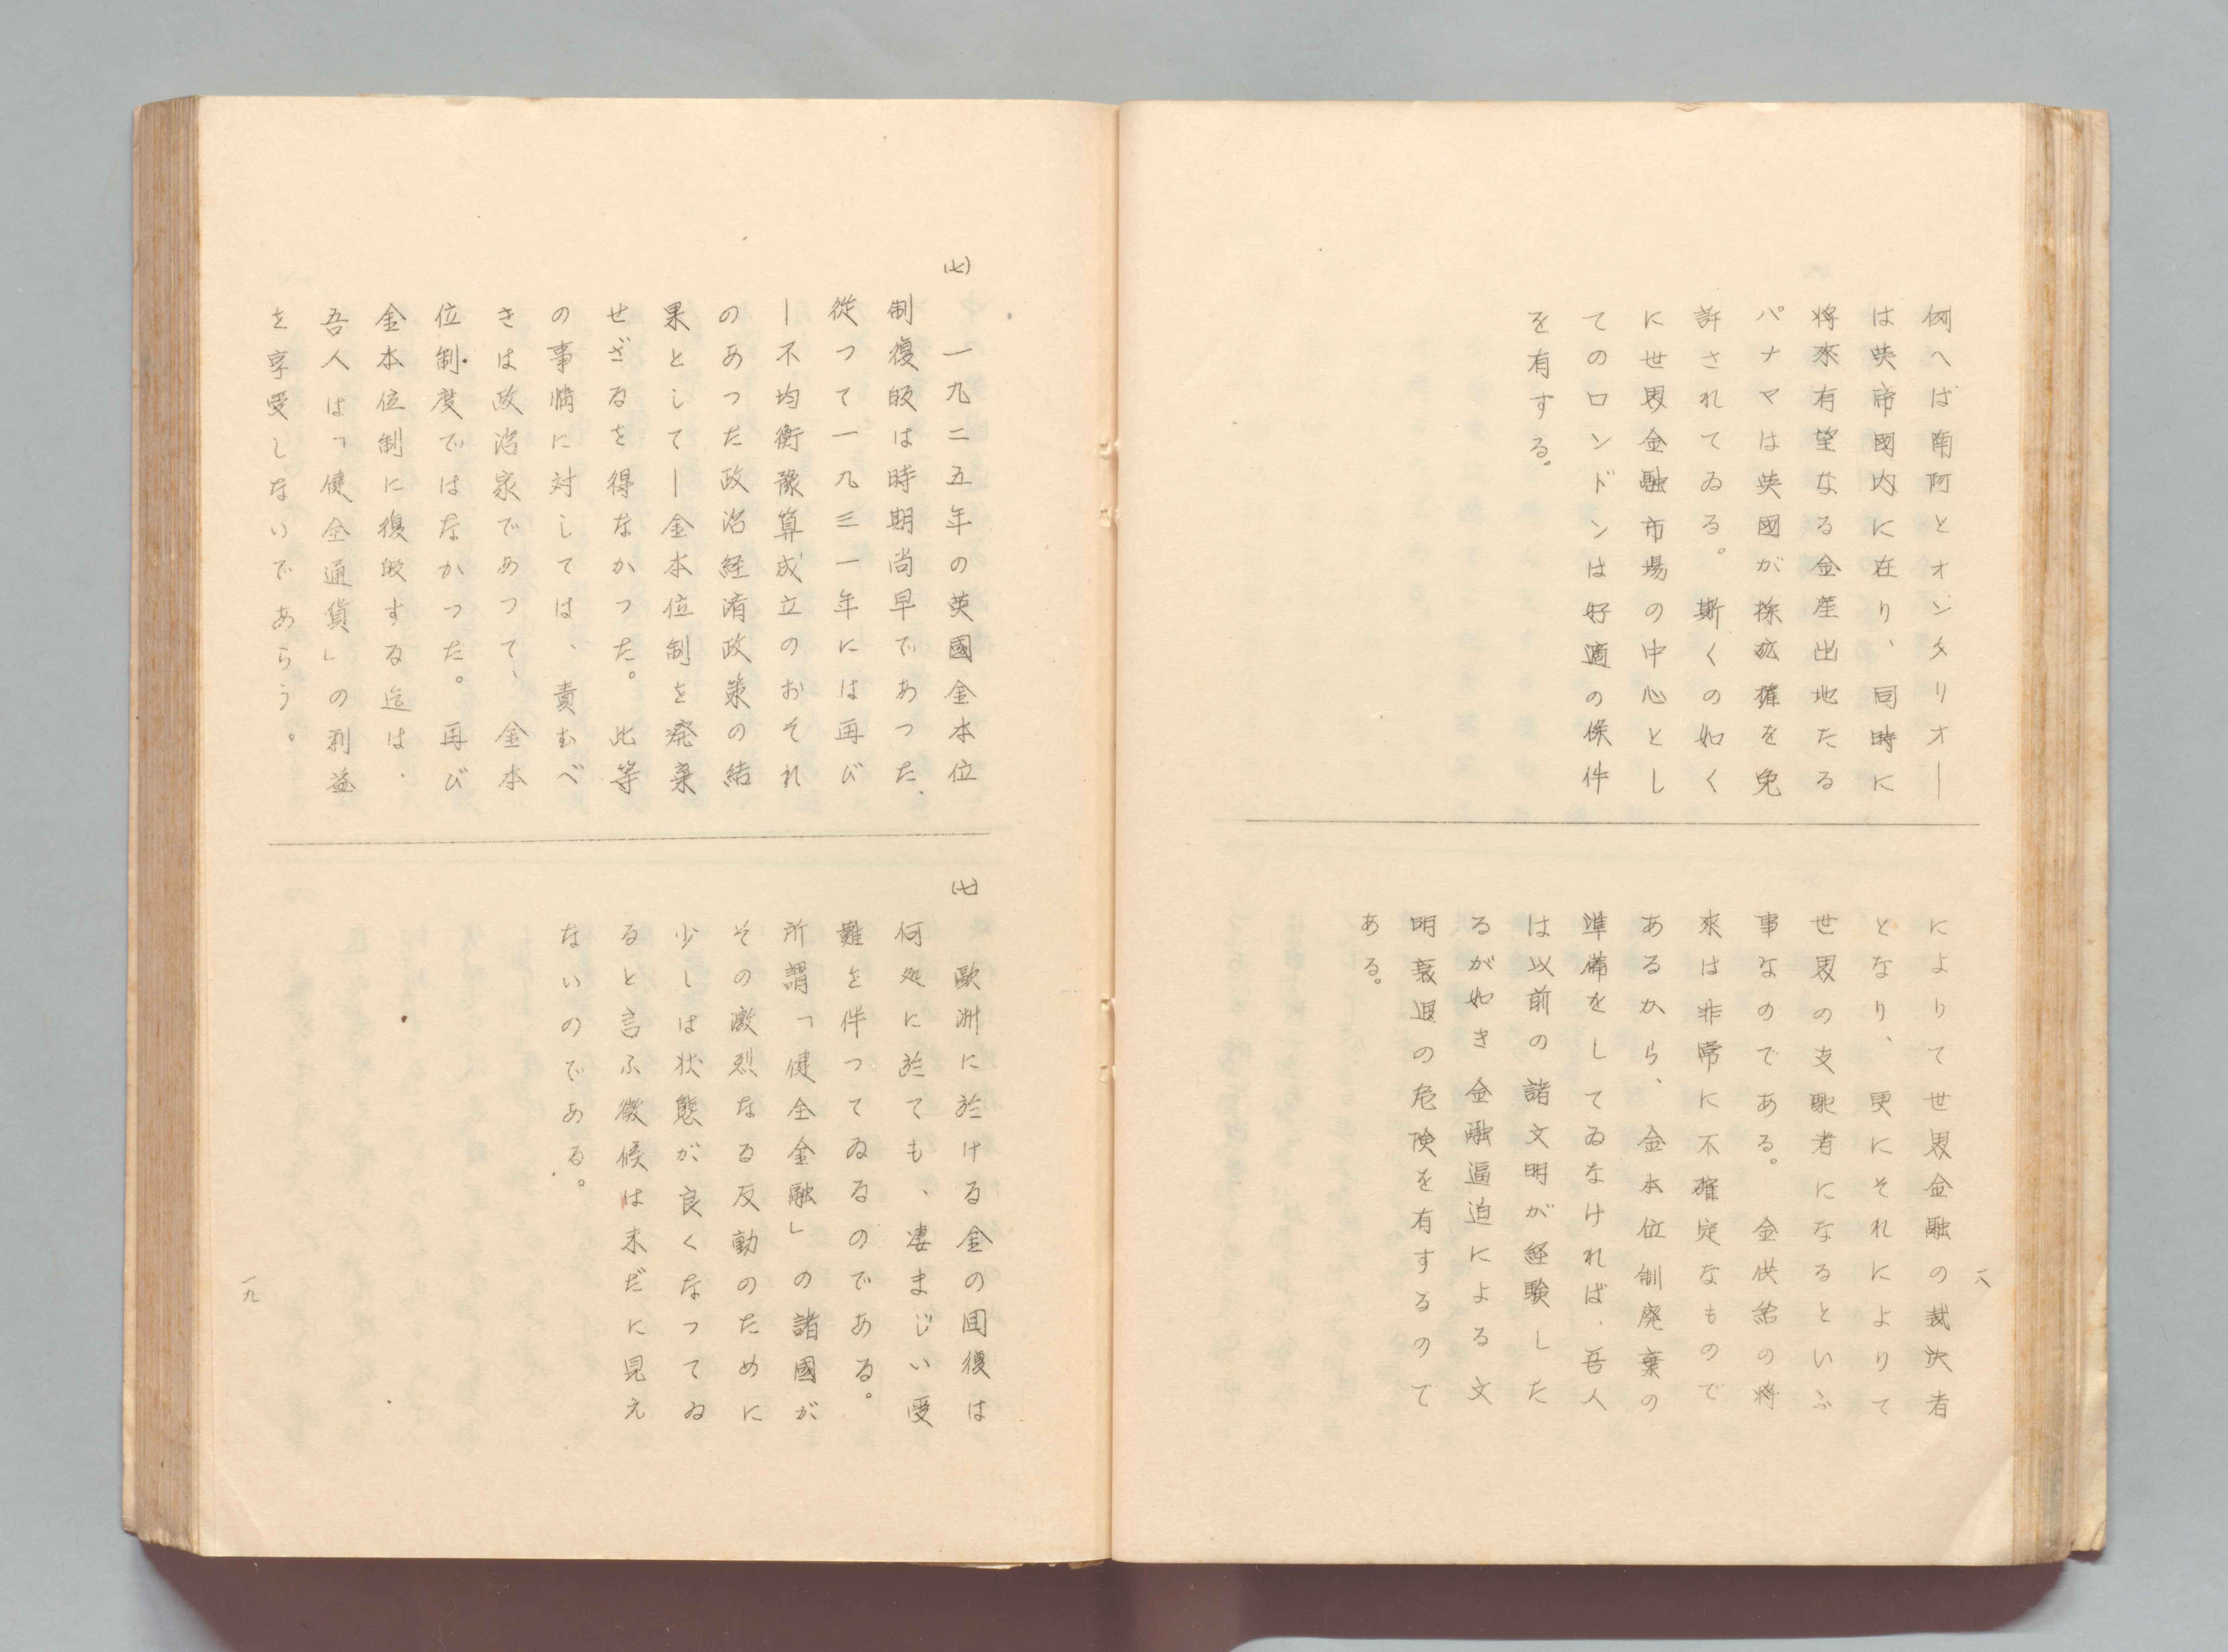 例へば南阿とオンタリオー
は英帝國内に在り、同時に
将來有望なる金産出地たる
パナマは英國が採砿権を免
許されてゐる。斯くの如く
に世界金融市場の中心とし
てのロンドンは好適の條件
を有する。
によりて世界金融の裁決者
となり、更にそれによりて
世界の支配者になるといふ
事なのである。金供給の將
來は非常に不確定なもので
あるから、金本位制廃棄の
準備をしてゐなければ、吾人
は以前の諸文明が経験した
るが如き金融逼迫による文
明衰退の危険を有するので
ある。
一八
(七)
一九二五年の英國金本位
制復皈は時期尚早であつた、
従つて一九三一年には再び
―不均衡豫算成立のおそれ
のあつた政治経済政策の結
果として―金本位制を発棄
せざるを得なかつた。此等
の事情に対しては、責むべ
きは政治家であつて、金本
位制度ではなかつた。再び
金本位制に復皈する迄は、
吾人は「健全通貨」の利益
を享受しないであらう。
(七)
歐洲に於ける金の囬復は
何処に於ても、凄まじい受
難を伴つてゐるのである。
所謂「健全金融」の諸國が
その激烈なる反動のために
少しは状態が良くなつてゐ
ると言ふ徴候は未だに見え
ないのである。
一九